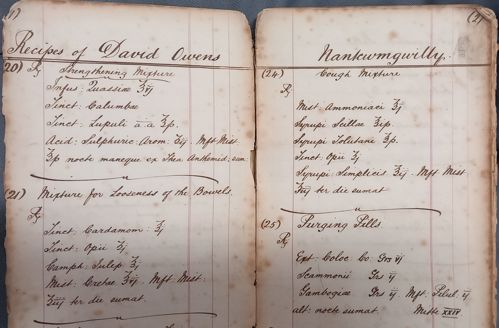 Recipes of David Owens
20) ℞ Strengthening Mixture
Infus: Quassiæ ℥vj
Tinct: Calumbæ
Tinct: Lupuli a a ʒp.
Acid: Sulphuric: Arom: ʒij Mft Mist
℥p nocte maneque ex Thea Anthemid: sum
(21) Mixture for Looseness of the Bowels.
℞
Tinct: Cardamom: ʒj
Tinct: Opii ʒj
Camph: Julep ℥j
Mist: Cretæ ℥vij Mft: Mist:
℥iij ter die sumat
Nantcwmgwilly.
(24) Cough Mixture
℞
Mist: Ammoniaci ℥j
Syrupi Scillæ ℥p.
Syrupi Tolutani ℥p.
Tinct Opii ʒj
Syrupi Simplicis ℥ij Mft Mist
ter die sumat
(25) Purging Pills
℞
Ext: Coloc: Co: Grs vj
Scammonii Grs ij
Gambogiæ Grs ij Mft: Pilul: ij
alt: nocte sumat Mitte XXIV